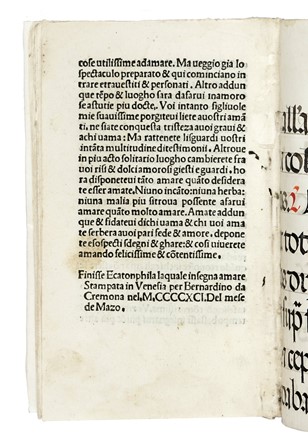 cose utilissime ad amare. Ma ueggio gia lo
spectaculo preparato & qui cominciano in
trare etrauestiti & personati. Altro addun
que tẽpo & luogho sara dasarui inamoro
se astutie piu docte. Voi intanto figliuole
mie suauissime porgiteui liete auostri amã
ti, ne siate con questa tristeza auoi graui &
achi uama: Ma rattenete lisguardi uostri in
intãta multitudine ditestimonii. Altroue
in piu acto solitario luogo cambierete fra
uoi risi & dolci amorosi giesti eguardi. ho
ra disponeteui tãto amare quãto desidera
te esser amate. Niuno incãto: niuna herba:
niuna malia piu sitroua possente afarui
amare quãto molto amare. Amate addun
que & fidateui dichi uama & chi uoi ama
te serbera auoi pari fede & amore. depone
te esospecti sdegni & ghare: & cosi uiuerete
amando felicissime & cõtentissime.
Finisse Ecatonphila laquale insegna amare
Stampata in Venesia per Bernardino da
Cremona nel. M.CCCCXCI. Del mese
de Mazo.
all'a
col
tot
dor
sup̃
cep